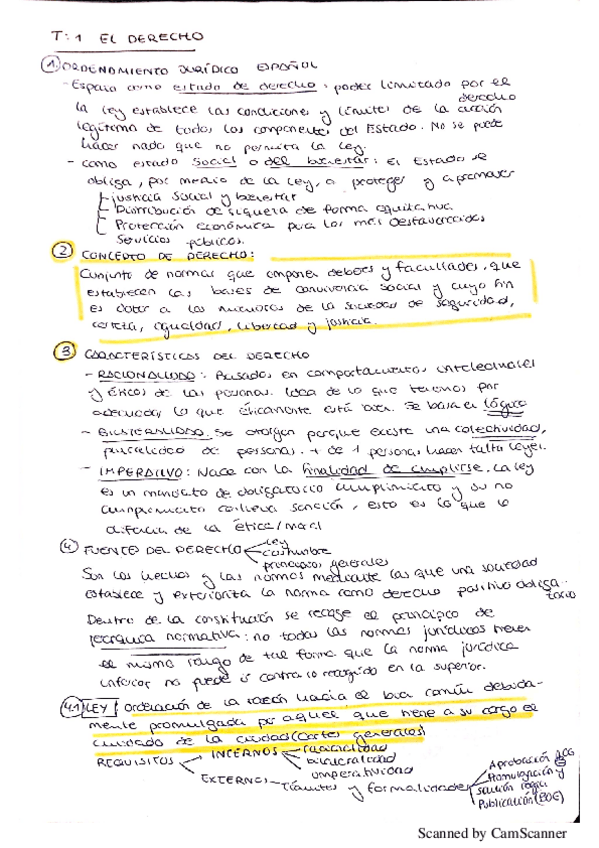 T: 1 EL DERECHO
1. ORDENAMIENTO JURÍDICO ESPAÑOL
- España como estado de derecho: poder limitado por el derecho
la ley establece las condiciones y límites de la acción
legítima de todos los componentes del Estado. No se puede
hacer nada que no permita la ley.
- como estado social o del bienestar: El Estado se
obliga, por medio de la ley, a proteger y a promover
justicia social y bienestar
Distribución de riqueza de forma equitativa
Protección económica para los más desfavorecidos
Servicios públicos.
2 CONCEPTO DE DERECHO:
Conjunto de normas que imponen deberes y facultades, que
establecen las bases de convivencia social y cuyo fin
es dotar a los miembros de la sociedad de seguridad,
certeza, igualdad, libertad y justicia.
3 CARACTERÍSTICAS DEL DERECHO
- RACIONALIDAD: Basados en comportamientos intelectuales
y éticos de las personas. Idea de lo que tenemos por
adecuado, lo que éticamente está bien. Se basa en lógica
- BILATERALIDAD: Se otorgan porque existe una colectividad,
pluralidad de personas. + de 1 persona, hacen falta leyes.
- IMPERATIVO: Nace con la finalidad de cumplirse. La ley
es un mandato de obligatorio cumplimiento y su no
cumplimiento conlleva sanción, esto es lo que lo
diferencia de la ética/moral
4 FUENTES DEL DERECHO
ley
costumbre
principios generales
Son los hechos y las normas mediante las que una sociedad
establece y exterioriza la norma como derecho positivo obligatorio
Dentro de la constitución se recoge el principio de
jerarquía normativa: no todas las normas jurídicas tienen
el mismo rango de tal forma que la norma jurídica
inferior no puede ir contra lo recogido en la superior.
4.1 LEY Ordenación de la razón hacia el bien común debida-
mente promulgada por aquel que tiene a su cargo el
cuidado de la ciudad (Cortes generales)
REQUISITOS
INTERNOS
racionalidad
bilateralidad
imperatividad
EXTERNOS
Trámites y formalidades
Aprobación CG
Promulgación y
sanción
Publicación (BOE)
Scanned by CamScanner